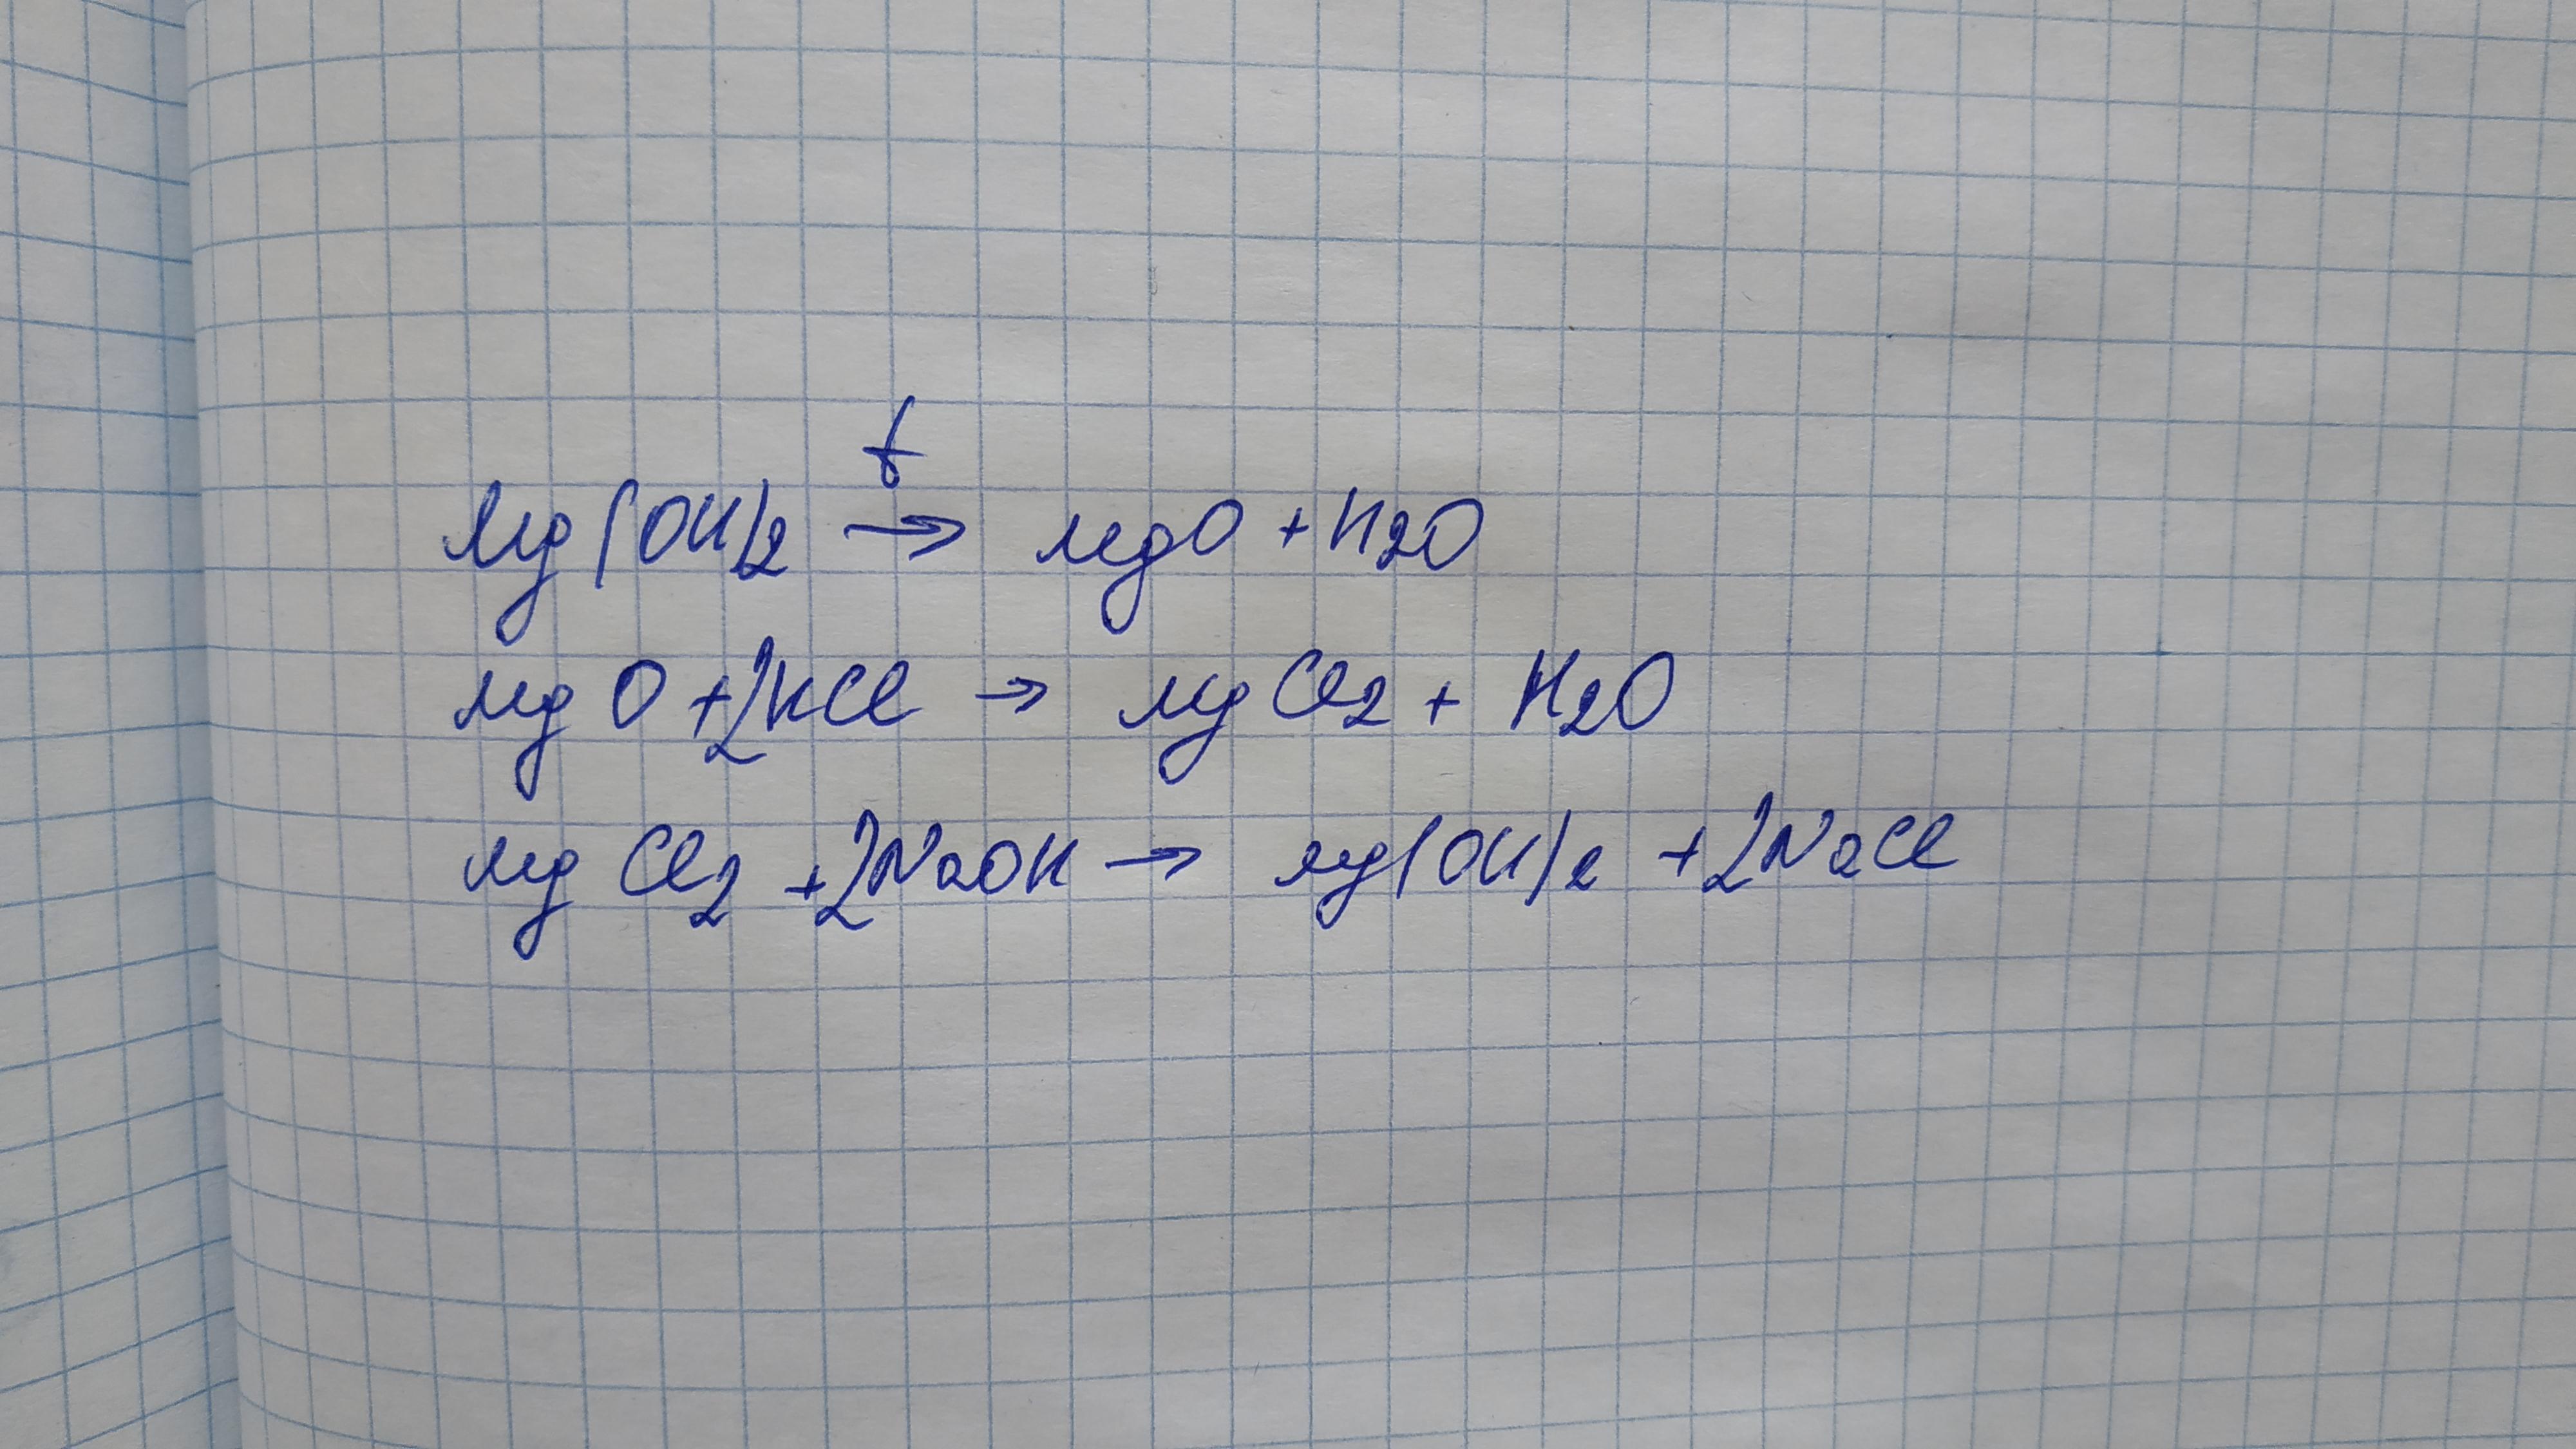 Mg(OH)2 t→ MgO + H2O
MgO + 2HCl → MgCl2 + H2O
MgCl2 + 2NaOH → Mg(OH)2 + 2NaCl